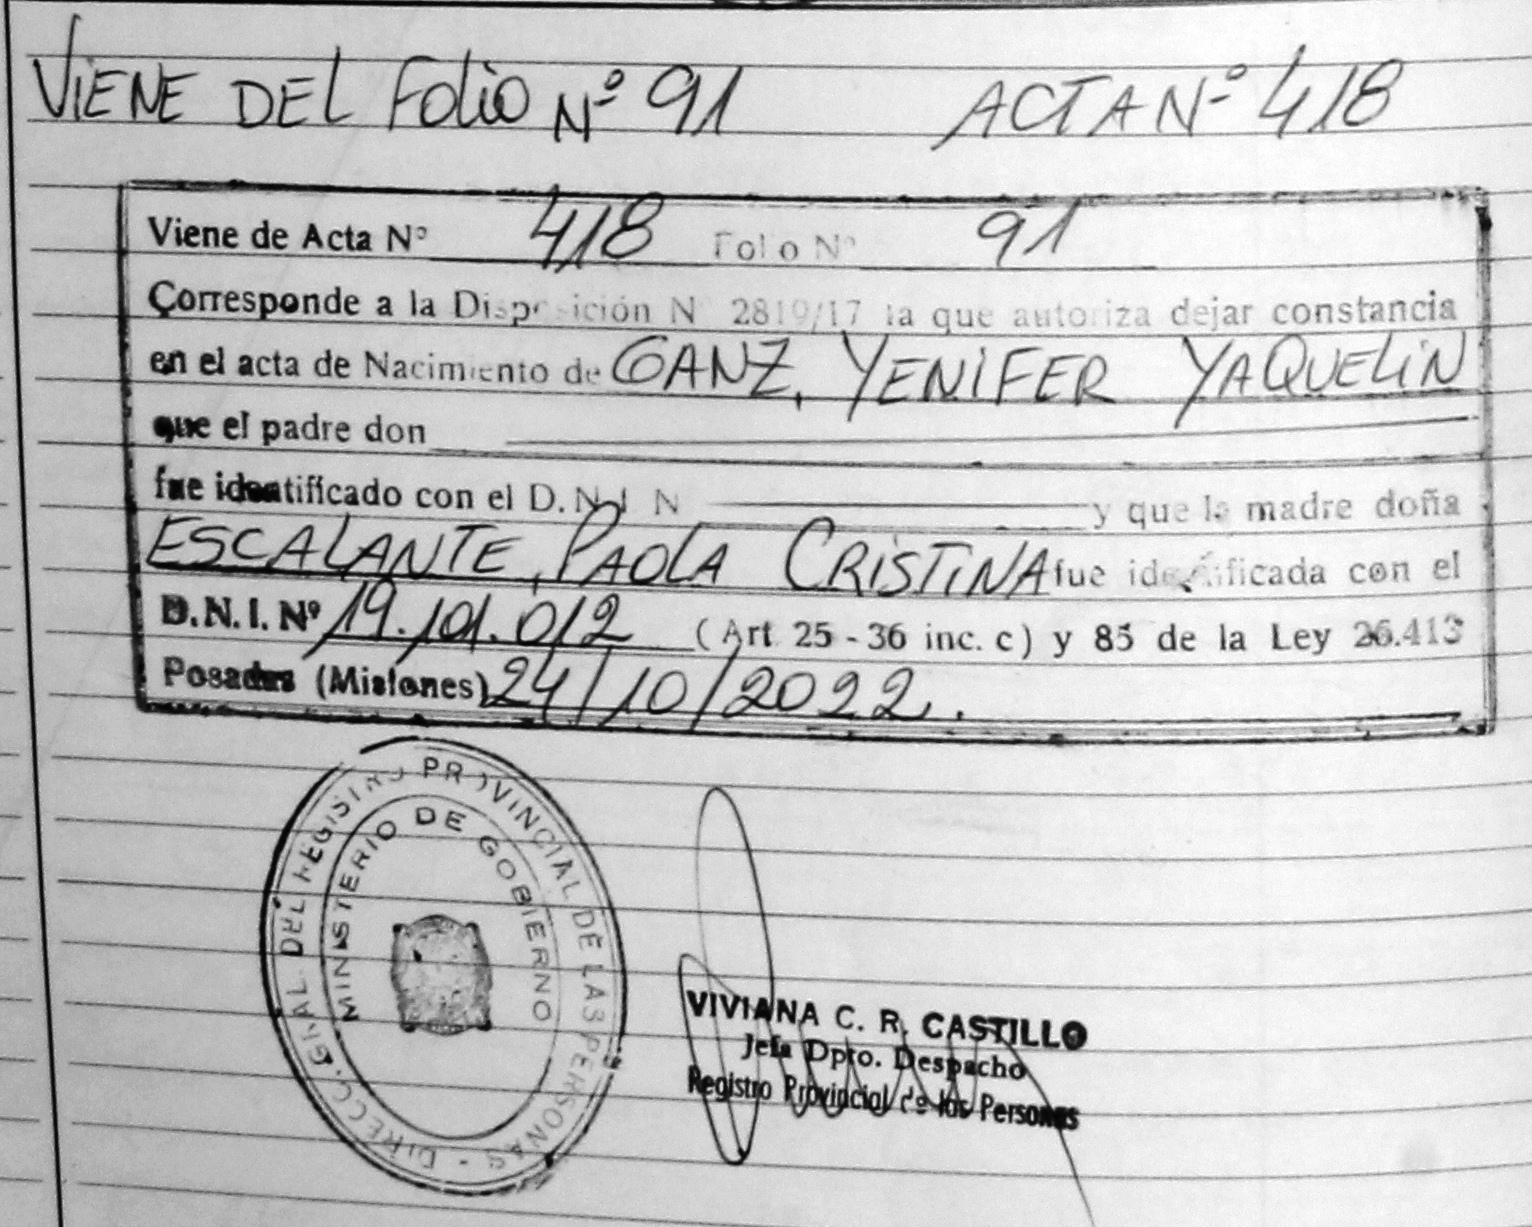 VIENE DEL FOLIO Nº 91 ACTA Nº 418
Viene de Acta Nº 418 Folio Nº 91
Corresponde a la Disposición Nº 2819/17 la que autoriza dejar constancia
en el acta de Nacimiento de GANZ, YENIFER YAQUELIN
que el padre don
fue identificado con el D.N.I N y que la madre doña
ESCALANTE, PAOLA CRISTINA fue identificada con el
D.N.I. Nº 19.101.012 (Art 25 - 36 inc. c) y 85 de la Ley 26.413
Posadas (Misiones) 24/10/2022.
DIRECC. GRAL. DEL REGISTRO PROVINCIAL DE LAS PERSONAS -
MINISTERIO DE GOBIERNO
VIVIANA C. R. CASTILLO
Jefa Dpto. Despacho
Registro Provincial de las Personas